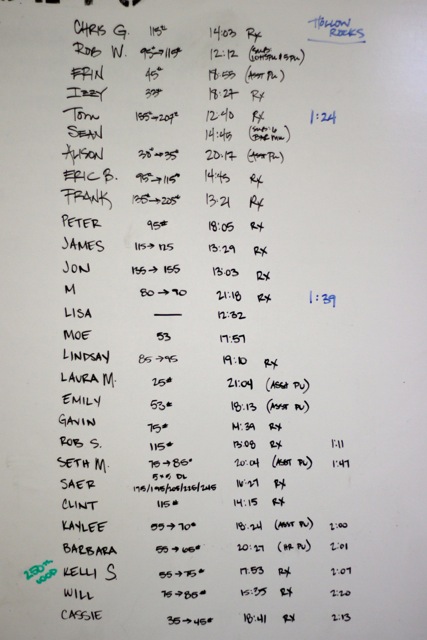 HOLLOW
ROCKS
CHRIS G. 115# 14:03 RX
ROB W. 95#→115# 12:12
ERIN 45# 18:55 (ASST PU)
IZZY 33# 18:27 RX
TOM 12:40 RX 1:24
SEAN 14:45
ALISON 30#→35# 20:17 (ASST PU)
ERIC B. 95#→115# 14:45 RX
FRANK 135#→205# 13:21 RX
PETER 95# 18:05 RX
JAMES 115→125 13:29 RX
JON 135→155 13:03 RX
M 80→90 21:18 RX 1:39
LISA — 12:32
MOE 53 17:57
LINDSAY 85→95 19:10 RX
LAURA M. 25# 21:04 (ASST PU)
EMILY 53# 18:13 (ASST PU)
GAVIN 75# 14:39 RX
ROB S. 115# 13:08 RX 1:11
SETH M. 75→85# 20:04 (ASST PU) 1:47
5x5 DL
SAER 175/195/205/225/245 16:27 RX
CLINT 115# 14:15 RX
KAYLEE 55→70# 18:24 (ASST PU) 2:00
BARBARA 55→65# 20:27 (HR PU) 2:01
250TH WOD KELLI S 55→75# 17:53 RX 2:07
WILL 75→85# 15:35 RX 2:20
CASSIE 35→45# 18:41 RX 2:13